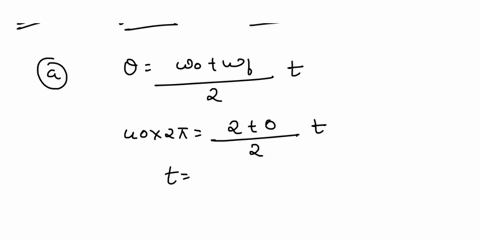 a θ = ω₀ + ω_f / 2 t
40×2π = 2 + 0 / 2 t
t =